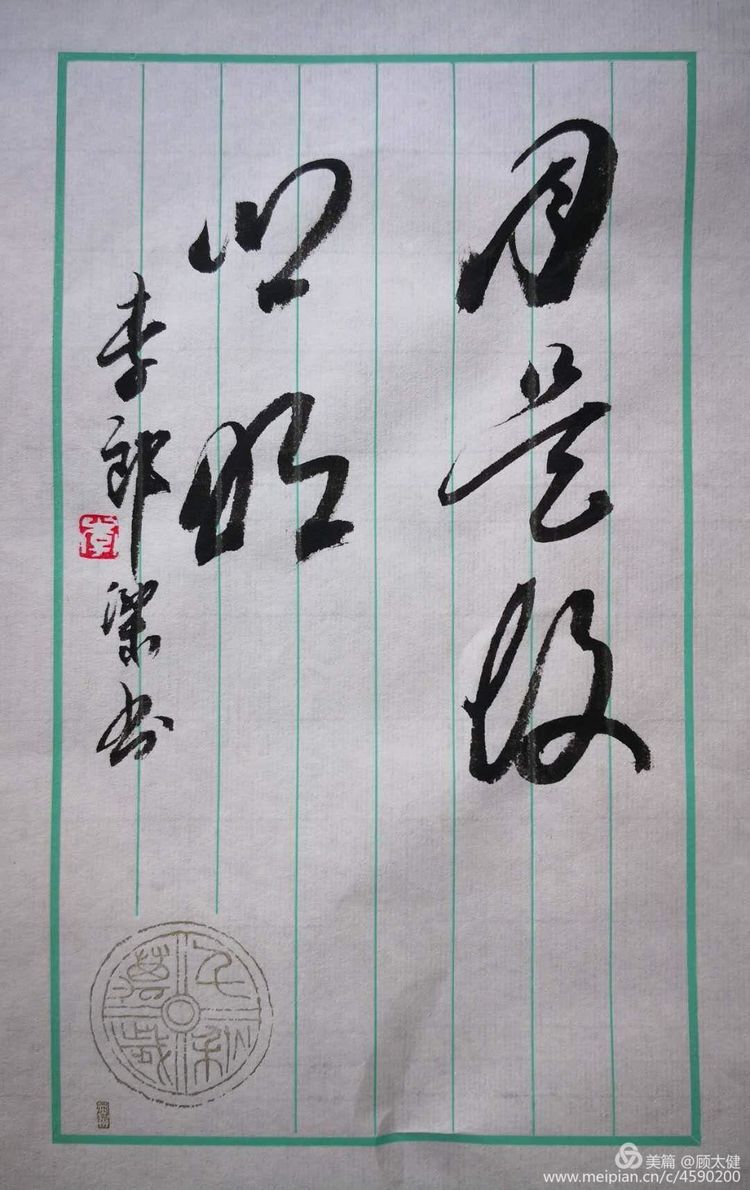 月是故
鄉明
李郎梁书
李
千秋萬歲
美篇 @顾太健
www.meipian.cn/c/4590200